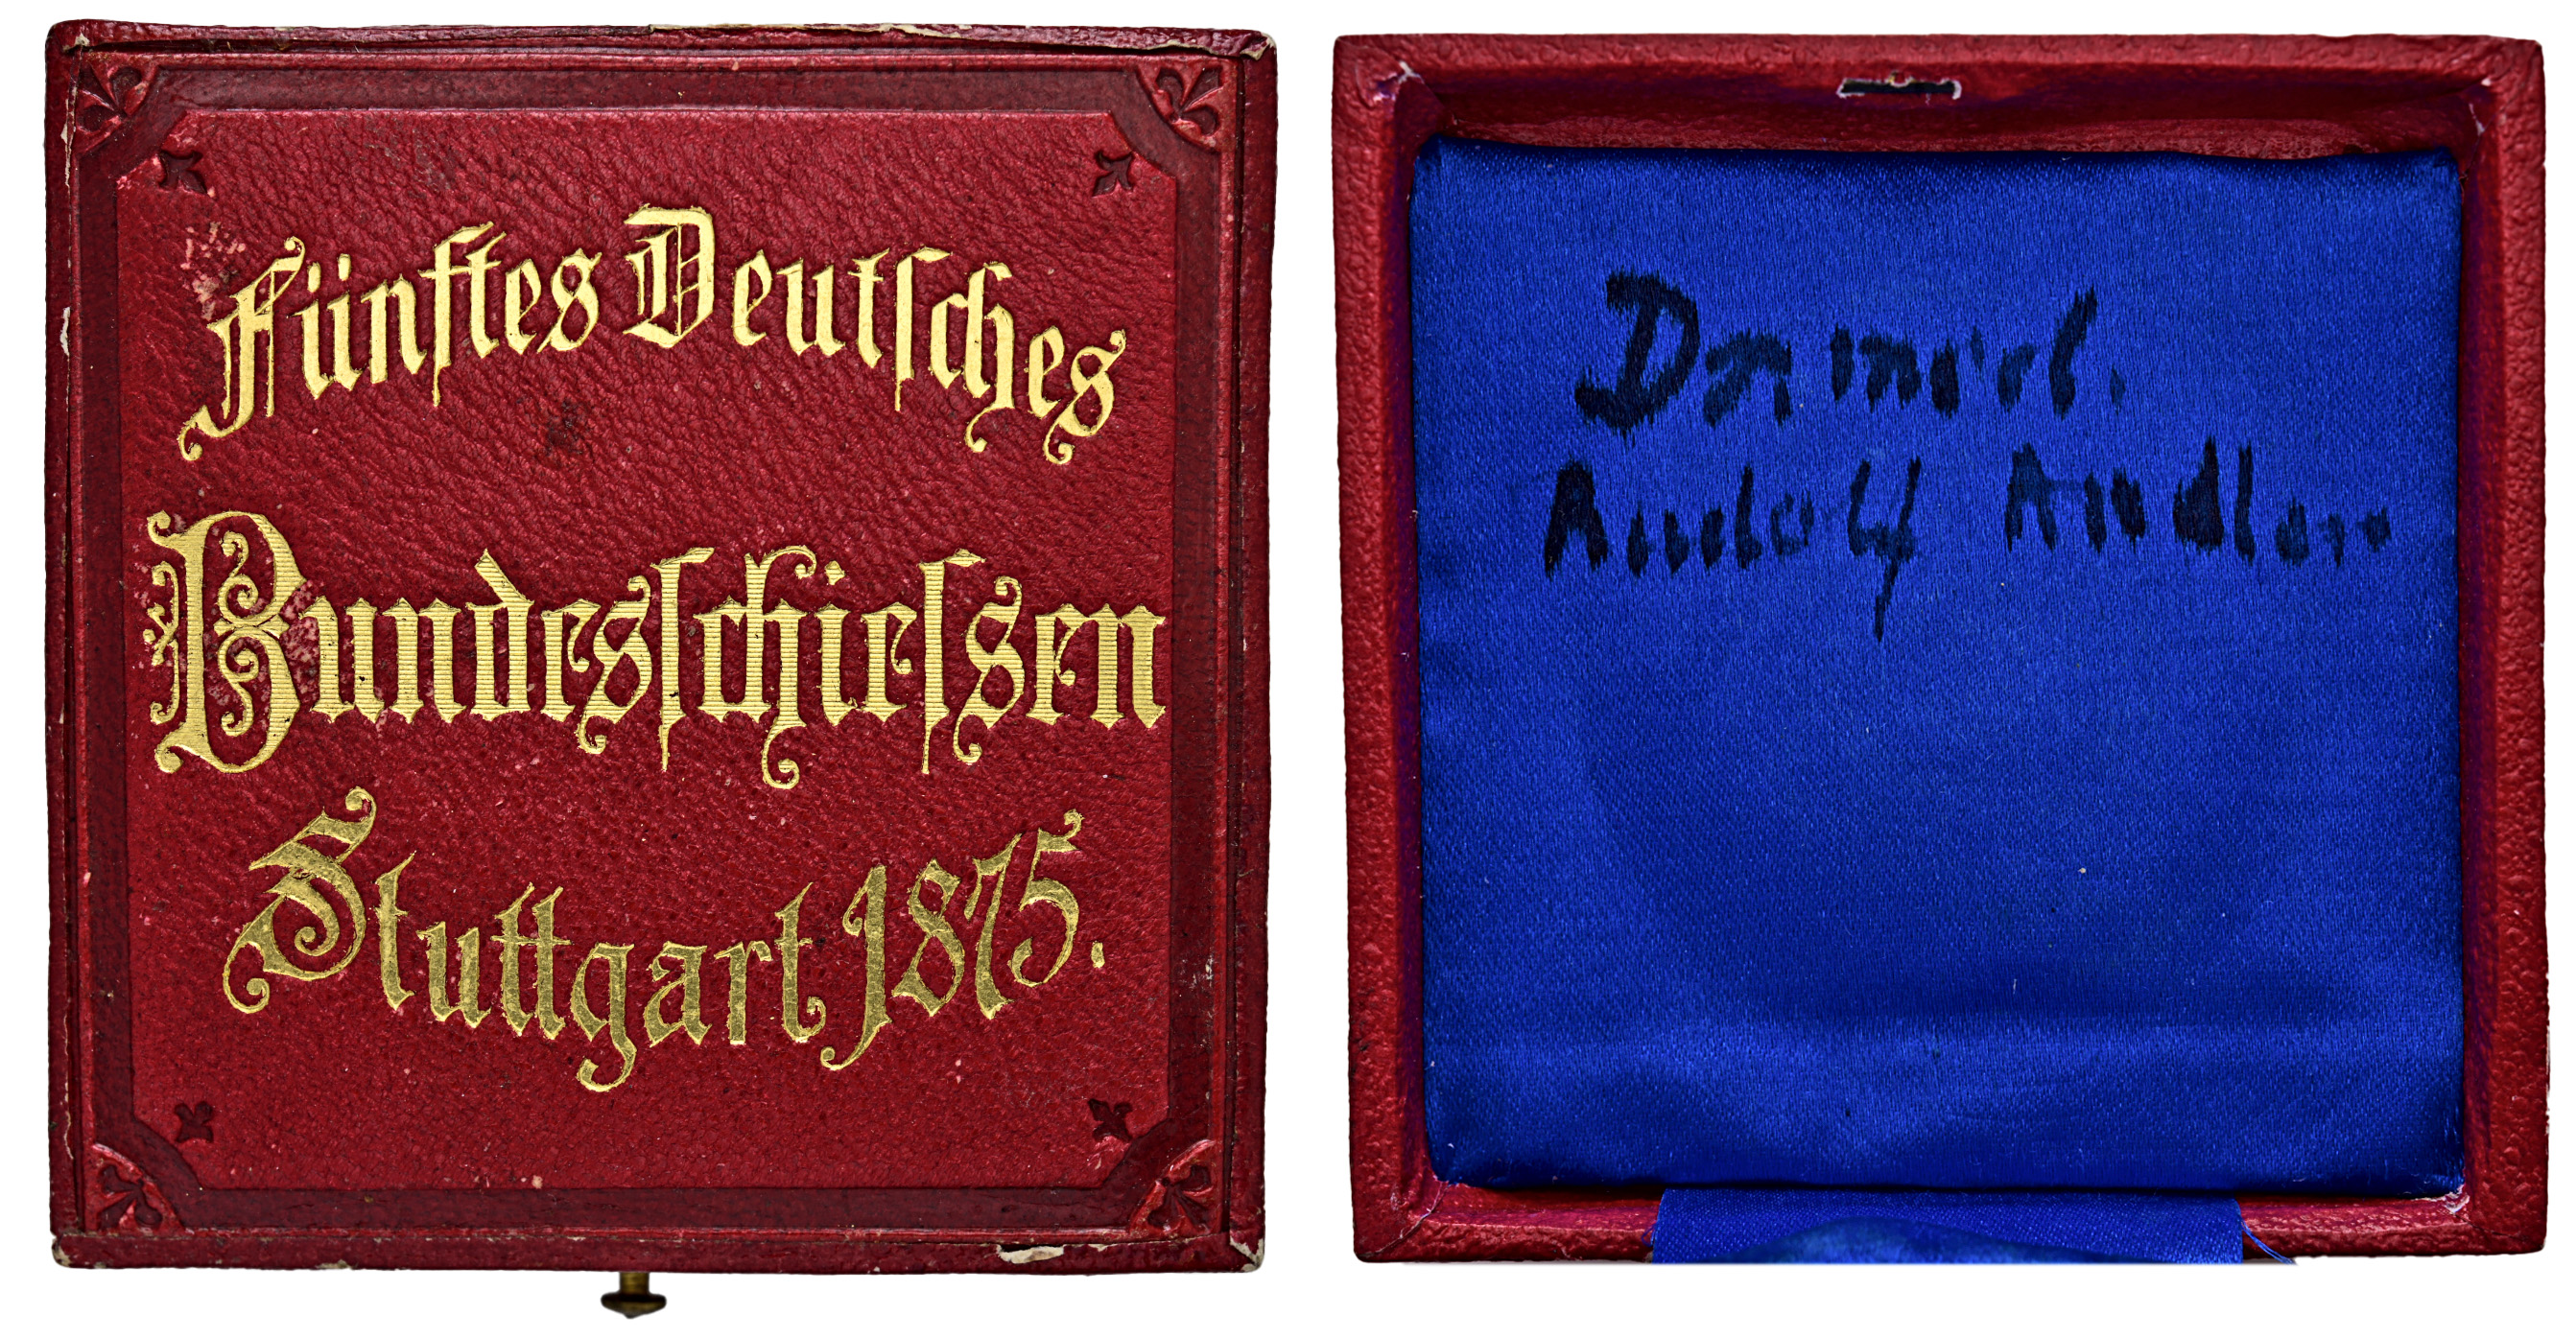 Fünftes Deutsches
Bundesschiefsen
Stuttgart 1875.
Rudolf